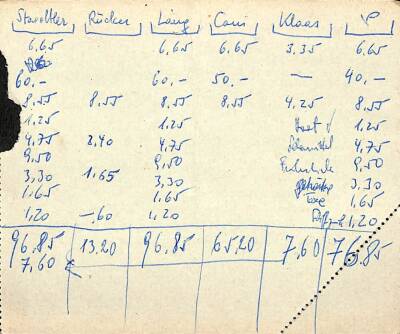 Rücker Lang Cani Klaas P
6,65 6,65 6,65 3.35 6.65
60,- 60,- 50,- — 40,-
8,55 8,55 8,55 8,55 4,25 8,55
1.25 1.25 1.25
4,75 2,40 4,75 4,75
9,50 9,50 9,50
3,30 1,65 3,30 3,30
1.65 1.65 Taxe 1,65
1,20 -,60 1,20 1,20
96.85 13.20 96.85 65.20 7.60 76.85
7,60